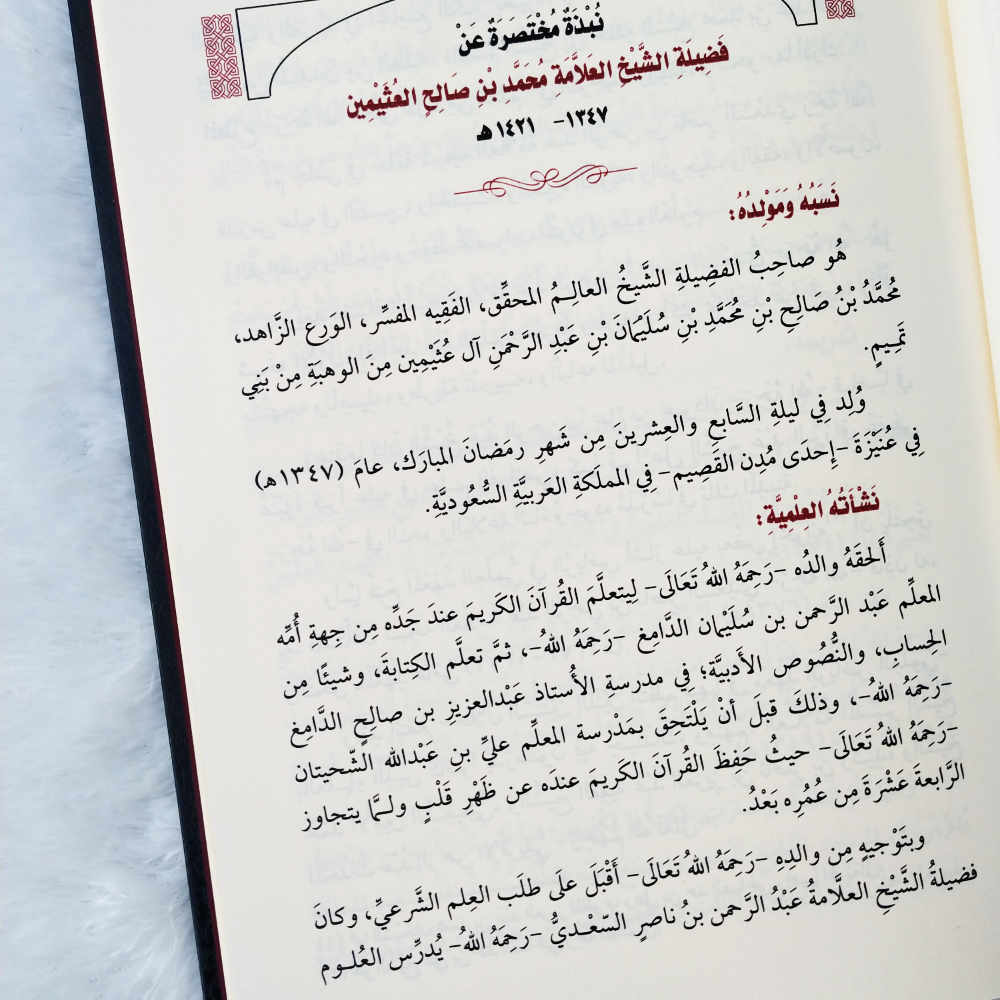 نُبْذَةٌ مُخْتَصَرَةٌ عَنْ
فَضِيلَةِ الشَّيْخِ العَلاَّمَةِ مُحَمَّدِ بْنِ صَالِحٍ العُثَيْمِين
١٣٤٧- ١٤٢١ هـ
نَسَبُهُ وَمَوْلِدُهُ:
هُو صاحِبُ الفضِيلةِ الشَّيخُ العالِـمُ المحقِّق، الفَقِيه المفسِّر، الوَرِع الزَّاهد،
مُحَمَّدُ بْنُ صَالِحِ بْنِ مُحَمَّدِ بْنِ سُلَيْمَانَ بْنِ عَبْدِ الرَّحْمَنِ آل عُثَيْمِين مِنَ الوهبَةِ مِنْ بَنِي
تَمِـيمٍ.
وُلِد فِي ليلةِ السَّابعِ والعِشرينَ مِن شَهرِ رمَضانَ المبارَك، عامَ (١٣٤٧هـ)
فِي عُنَيْزَةَ -إِحدَى مُدِن القَصِيم- فِي المملَكةِ العَربيَّةِ السُّعُوديَّةِ.
نَشْأَتُهُ العِلْمِيَّةِ:
أَلحقَهُ والدُه -رَحِمَهُ اللهُ تَعَالَى- لِيتعلَّمَ القُرآنَ الكَريمَ عندَ جَدِّه مِن جِهةِ أُمِّه
المعلِّم عَبْد الرَّحمن بن سُلَيْمان الدَّامِغ -رَحِمَهُ اللهُ-، ثمَّ تعلَّم الكِتابةَ، وشيئًا مِن
الحِسابِ، والنُّصُوص الأَدبيَّة؛ فِي مدرسةِ الأُستاذ عَبْدالعزيزِ بن صالِحٍ الدَّامِغ
-رَحِمَهُ اللهُ-، وذلكَ قبلَ أنْ يَلْتَحِقَ بمَدْرسة المعلِّم عليِّ بنِ عَبْدالله الشّحيتان
-رَحِمَهُ اللهُ تَعَالَى- حيثُ حَفِظَ القُرآنَ الكَريمَ عندَه عن ظَهْرِ قَلْبٍ ولـمَّا يتجاوز
الرَّابعةَ عَشْرَةَ مِن عُمُرِه بَعْدُ.
وبتَوْجيهٍ مِن والدِهِ -رَحِمَهُ اللهُ تَعَالَى- أَقْبَلَ علَى طلَب العِلم الشَّرعيِّ، وكانَ
فضيلةُ الشَّيْخِ العلاَّمةُ عَبْدُ الرَّحمن بنُ ناصرٍ السّعْـديُّ -رَحِمَهُ اللهُ- يُدرِّس العُلـوم